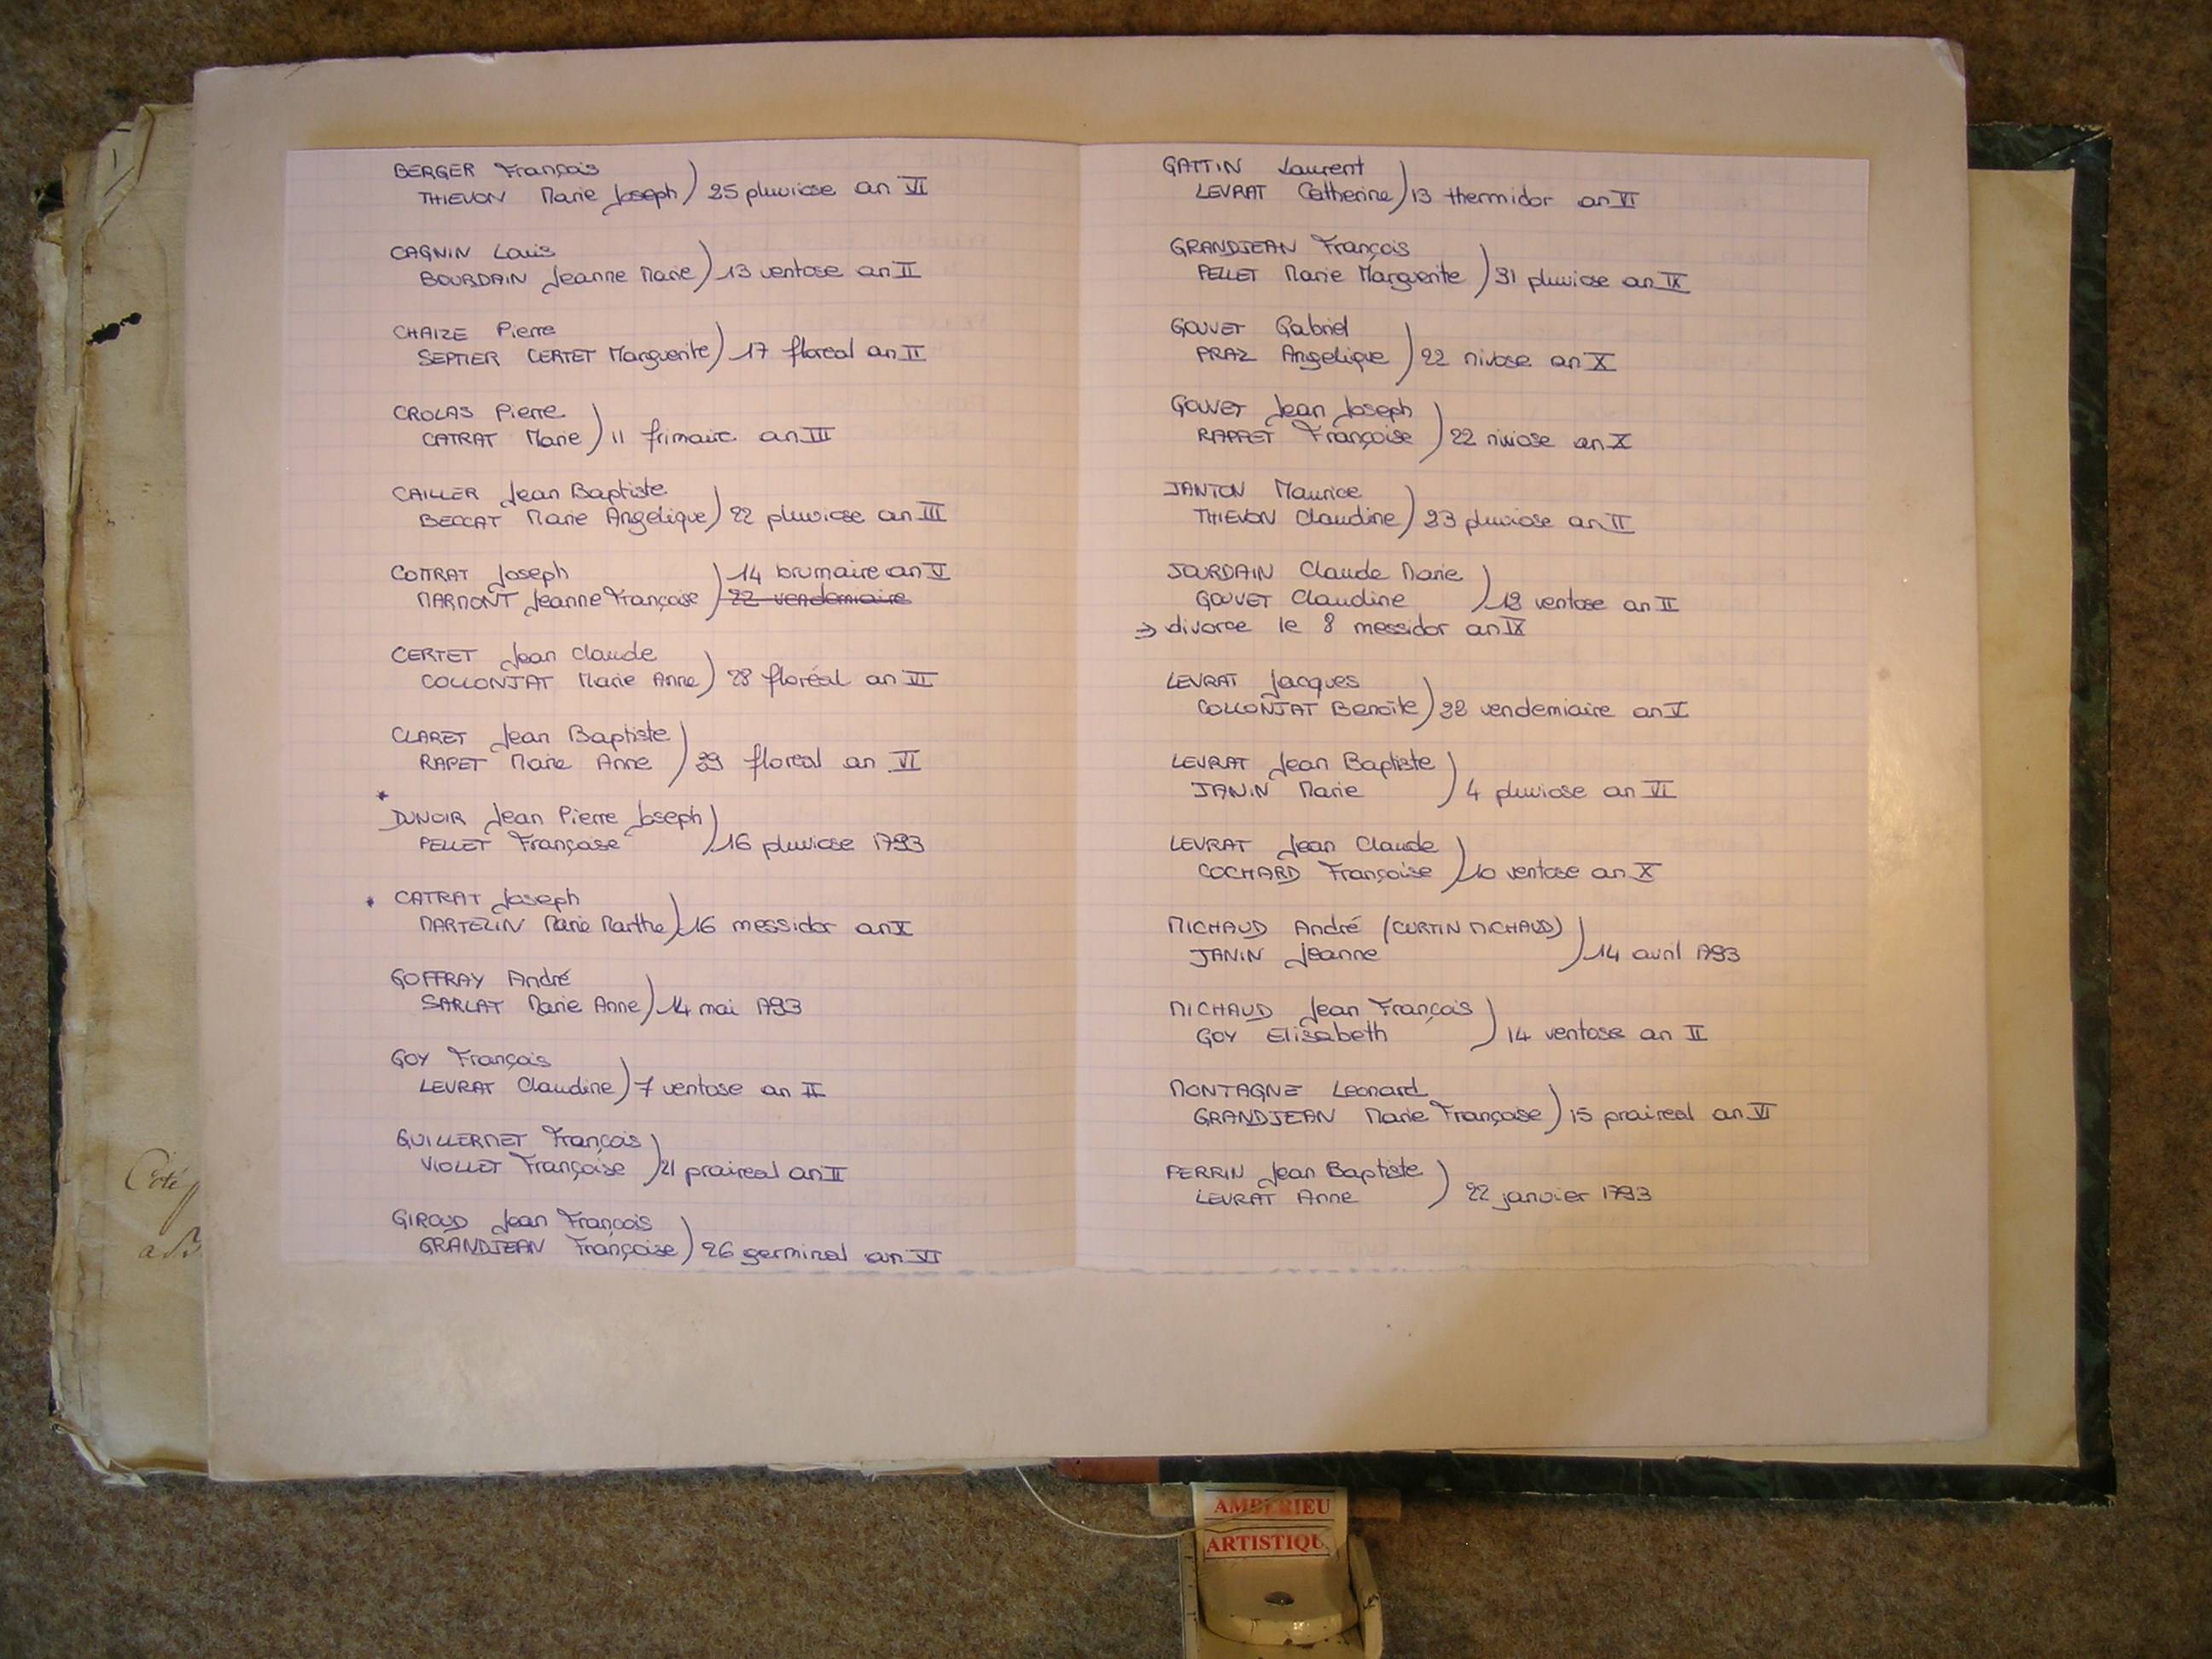 BERGER François
THIEVON Marie Joseph ) 25 pluviose an VI
CAGNIN Louis
BOURDAIN Jeanne Marie ) 13 ventose an II
CHAIZE Pierre
SEPTIER CERTET Marguerite ) 17 floreal an II
CROLAS Pierre
CATRAT Marie ) 11 frimaire an III
CAILLER Jean Baptiste
BECCAT Marie Angelique ) 22 pluviose an III
COTTRAT Joseph ) 14 brumaire an V
MARMONT Jeanne Françoise ) 22 vendemiaire
CERTET Jean Claude
COLLONJAT Marie Anne ) 28 floréal an VI
CLARET Jean Baptiste
RAPET Marie Anne ) 29 floreal an VI
*
DUNOIR Jean Pierre Joseph
PELLET Françoise ) 16 pluviose 1793
* CATRAT Joseph
MARTELIN Marie Marthe ) 16 messidor an X
GOFFRAY André
SARLAT Marie Anne ) 14 mai 1793
GOY François
LEVRAT Claudine ) 7 ventose an II
GUILLERMET François
VIOLLET Françoise ) 21 praireal an II
GIROUD Jean François
GRANDJEAN Françoise ) 26 germinal an VI
GATTIN Laurent
LEVRAT Catherine ) 13 thermidor an VI
GRANDJEAN François
PELLET Marie Marguerite ) 31 pluviose an IX
GOUVET Gabriel
PRAZ Angelique ) 22 nivose an X
GOUVET Jean Joseph
RAPPET Françoise ) 22 nivose an X
JANTON Maurice
THIEVON Claudine ) 23 pluviose an II
JOURDAIN Claude Marie
GOUVET Claudine ) ventose an II
=> divorce le 8 messidor an IX
LEVRAT Jacques
COLLONJAT Benoîte ) 22 vendemiaire an V
LEVRAT Jean Baptiste
JANIN Marie ) 4 pluviose an VI
LEVRAT Jean Claude
COCHARD Françoise ) 10 ventose an X
MICHAUD André (CURTIN MICHAUD)
JANIN Jeanne ) 14 avril 1793
MICHAUD Jean François
GOY Elisabeth ) 14 ventose an II
MONTAGNE Leonard
GRANDJEAN Marie Françoise ) 15 praireal an VI
PERRIN Jean Baptiste
LEVRAT Anne ) 22 janvier 1793
AMBERIEU
ARTISTIQU